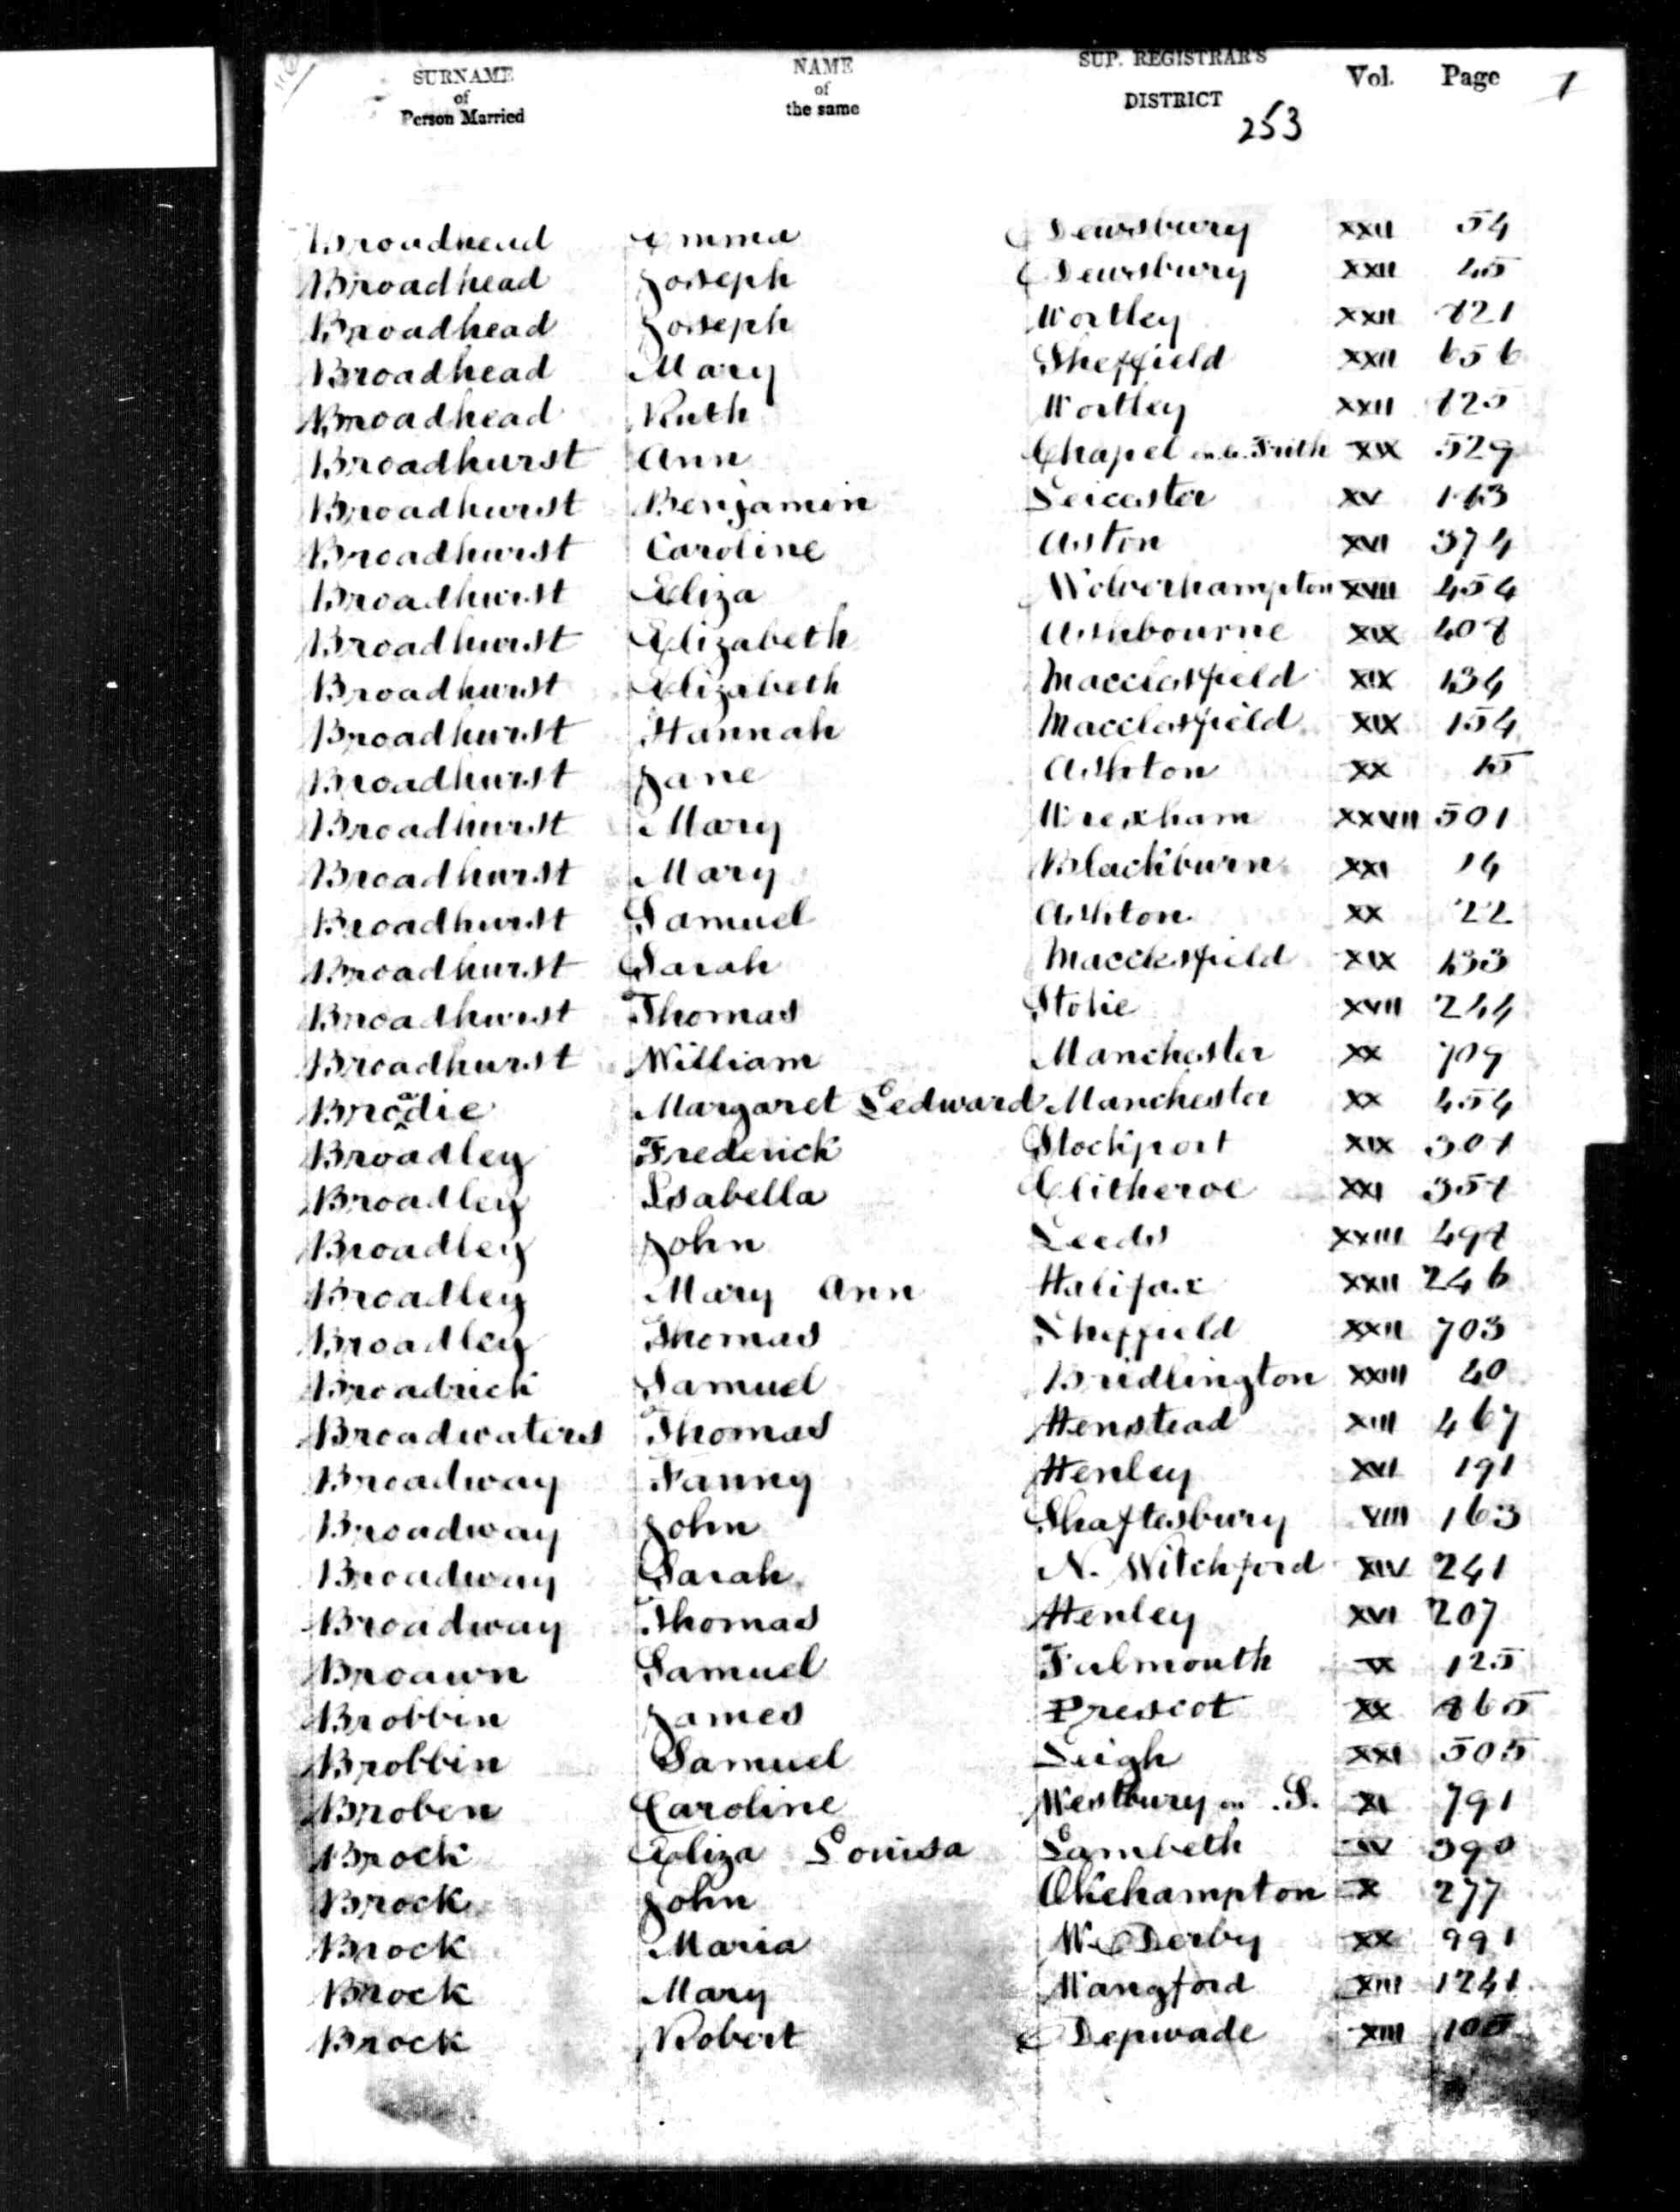 SURNAME of Person Married NAME of the same SUP. REGISTRAR'S DISTRICT Vol. Page 1
253
Broadhead Emma Dewsbury XXII 54
Broadhead Joseph Dewsbury XXII 45
Broadhead Joseph Wortley XXII 821
Broadhead Mary Sheffield XXII 656
Broadhead Ruth Wortley XXII 825
Broadhurst Ann Chapel en le Frith XIX 529
Broadhurst Benjamin Leicester XV 163
Broadhurst Caroline Aston XVI 374
Broadhurst Eliza Wolverhampton XVII 454
Broadhurst Elizabeth Ashbourne XIX 408
Broadhurst Elizabeth Macclesfield XIX 134
Broadhurst Hannah Macclesfield XIX 154
Broadhurst Jane Ashton XX 15
Broadhurst Mary Wrexham XXVII 501
Broadhurst Mary Blackburn XXI 14
Broadhurst Samuel Ashton XX 22
Broadhurst Sarah Macclesfield XIX 133
Broadhurst Thomas Stoke XVII 244
Broadhurst William Manchester XX 709
Broadie Margaret Ledward Manchester XX 454
Broadley Frederick Stockport XIX
Broadley Isabella Clitheroe XXI
Broadley John Leeds XXIII 498
Broadley Mary Ann Halifax XXII 246
Broadley Thomas Sheffield XXII 703
Broadrick Samuel Bridlington XXIII 40
Broadwaters Thomas Henstead XIII 467
Broadway Fanny Henley XVI 191
Broadway John Shaftesbury VIII 163
Broadway Sarah N. Witchford XIV 241
Broadway Thomas Henley XVI 207
Broawn Samuel Falmouth IX 125
Brobbin James Prescot XX 865
Brobbin Samuel Leigh XXI 505
Broben Caroline Westbury on S. XI 791
Brock Eliza Louisa Lambeth IV 390
Brock John Okehampton X 277
Brock Maria W. Derby XX 991
Brock Mary Wangford XIII 1241
Brock Robert Depwade XIII